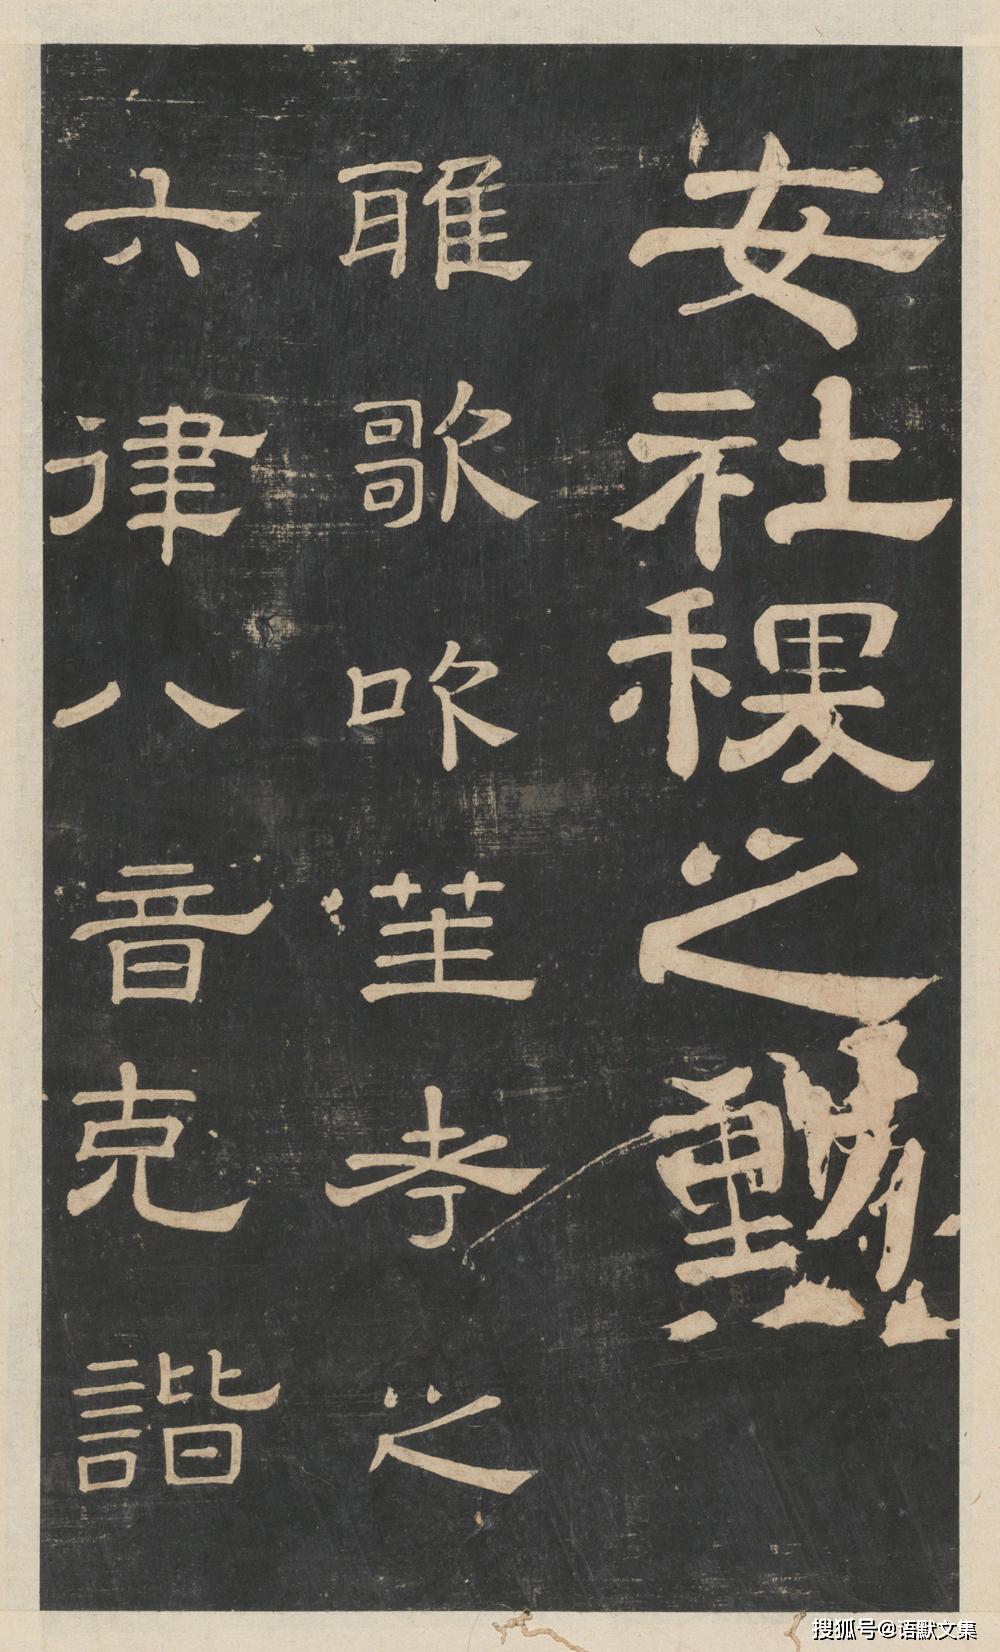 安社稷之勳
雅歌吹笙考之
六律八音克諧
搜狐号@语默文集